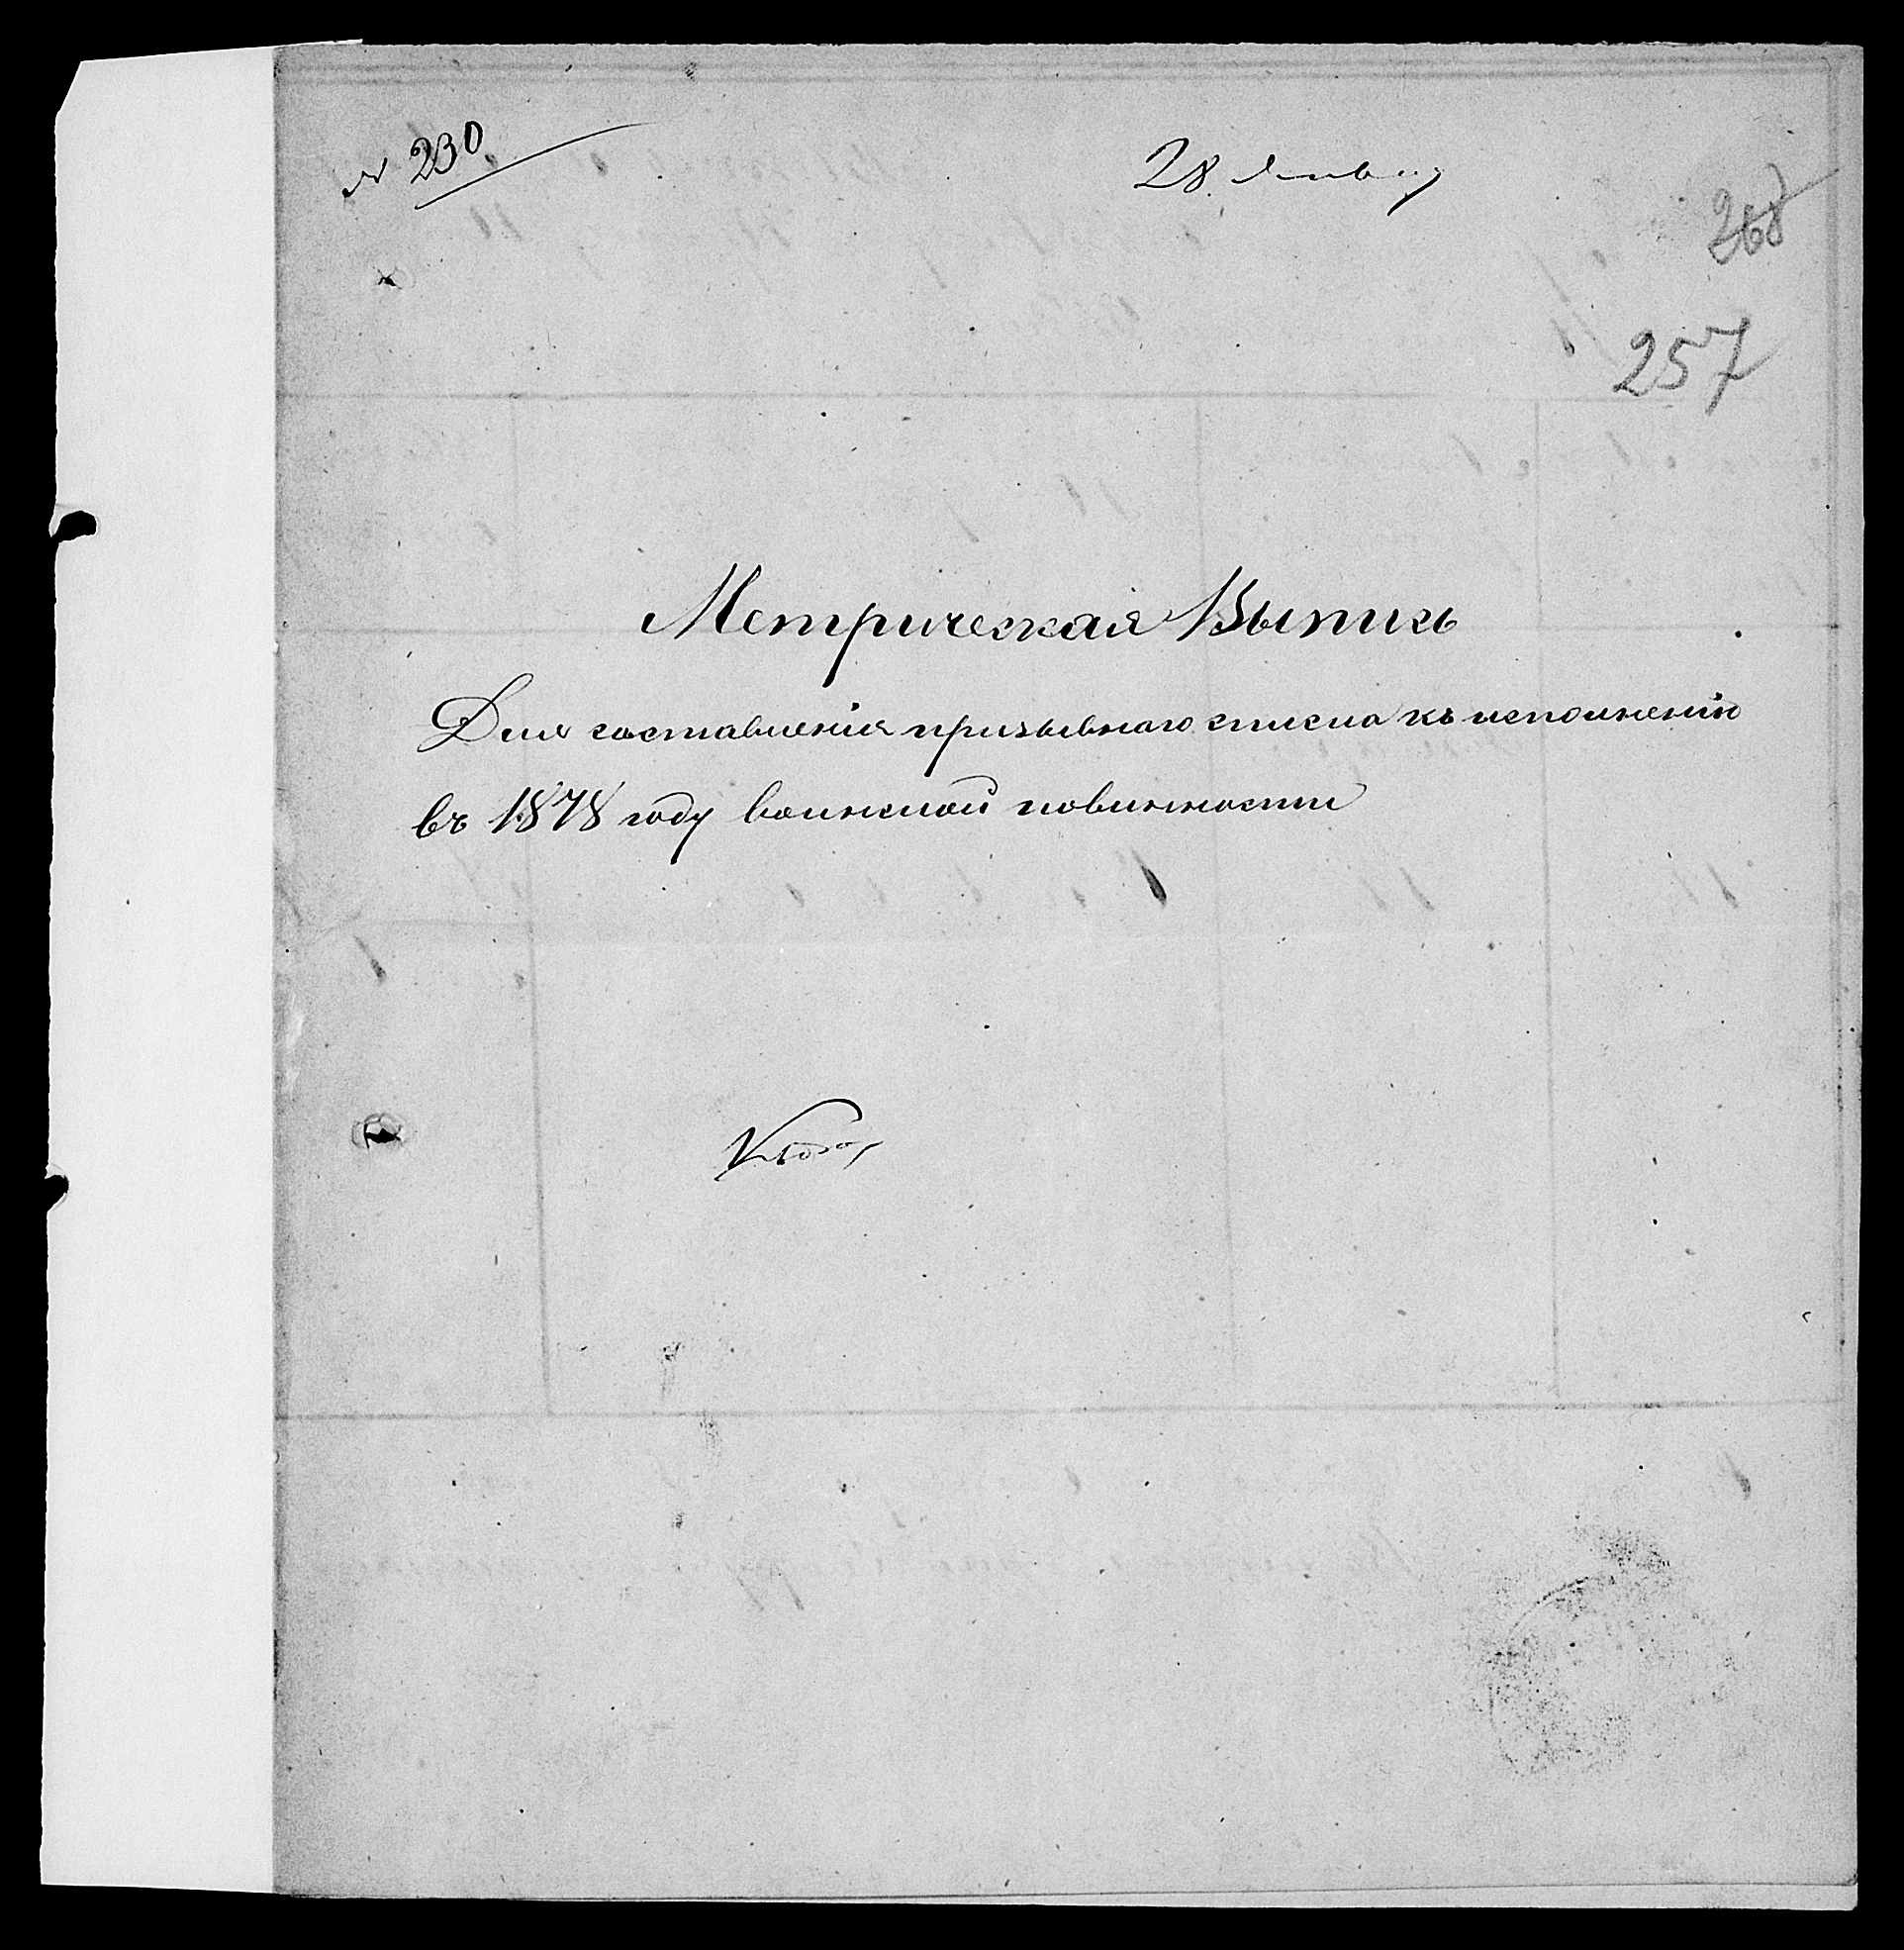 № 230
28 Января
268
257
Метрическая Выпись
Для составленія призывнаго списка къ исполненію
въ 1878 году воинской повинности